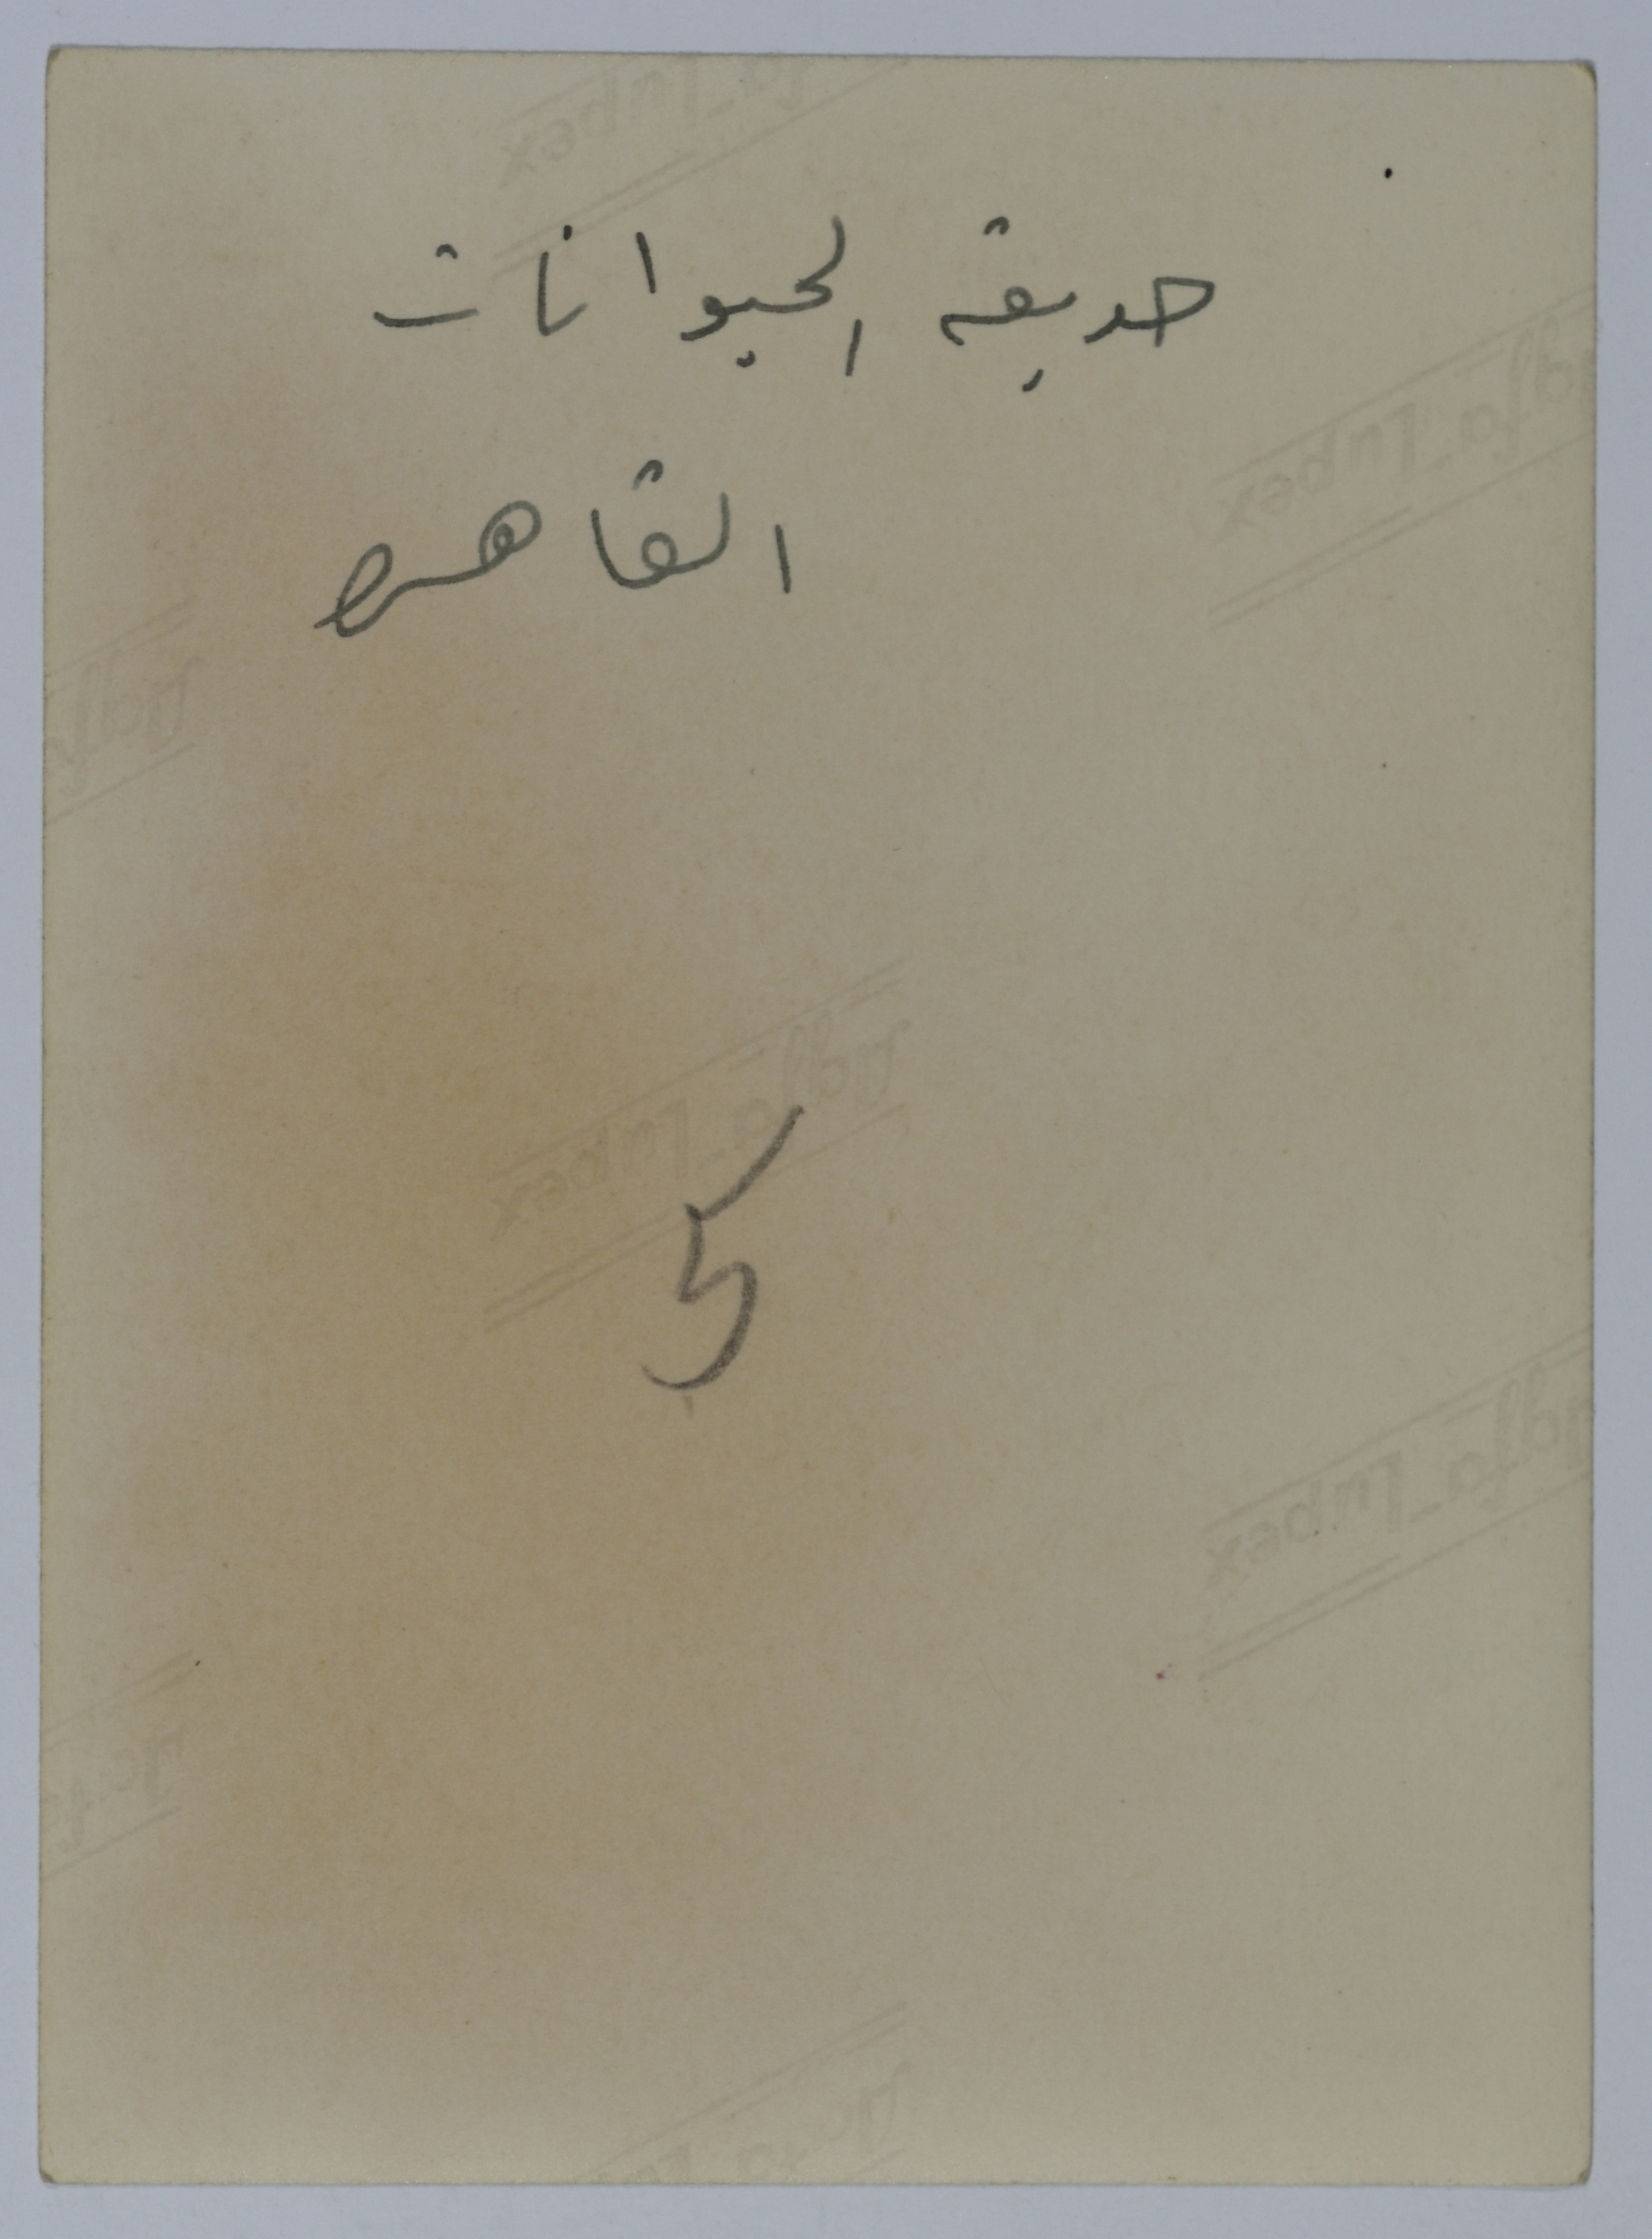 حديقه الحيوانات
القاهره
5
Agfa-Lupex
Agfa-Lupex
Agfa-Lupex
Agfa-Lupex